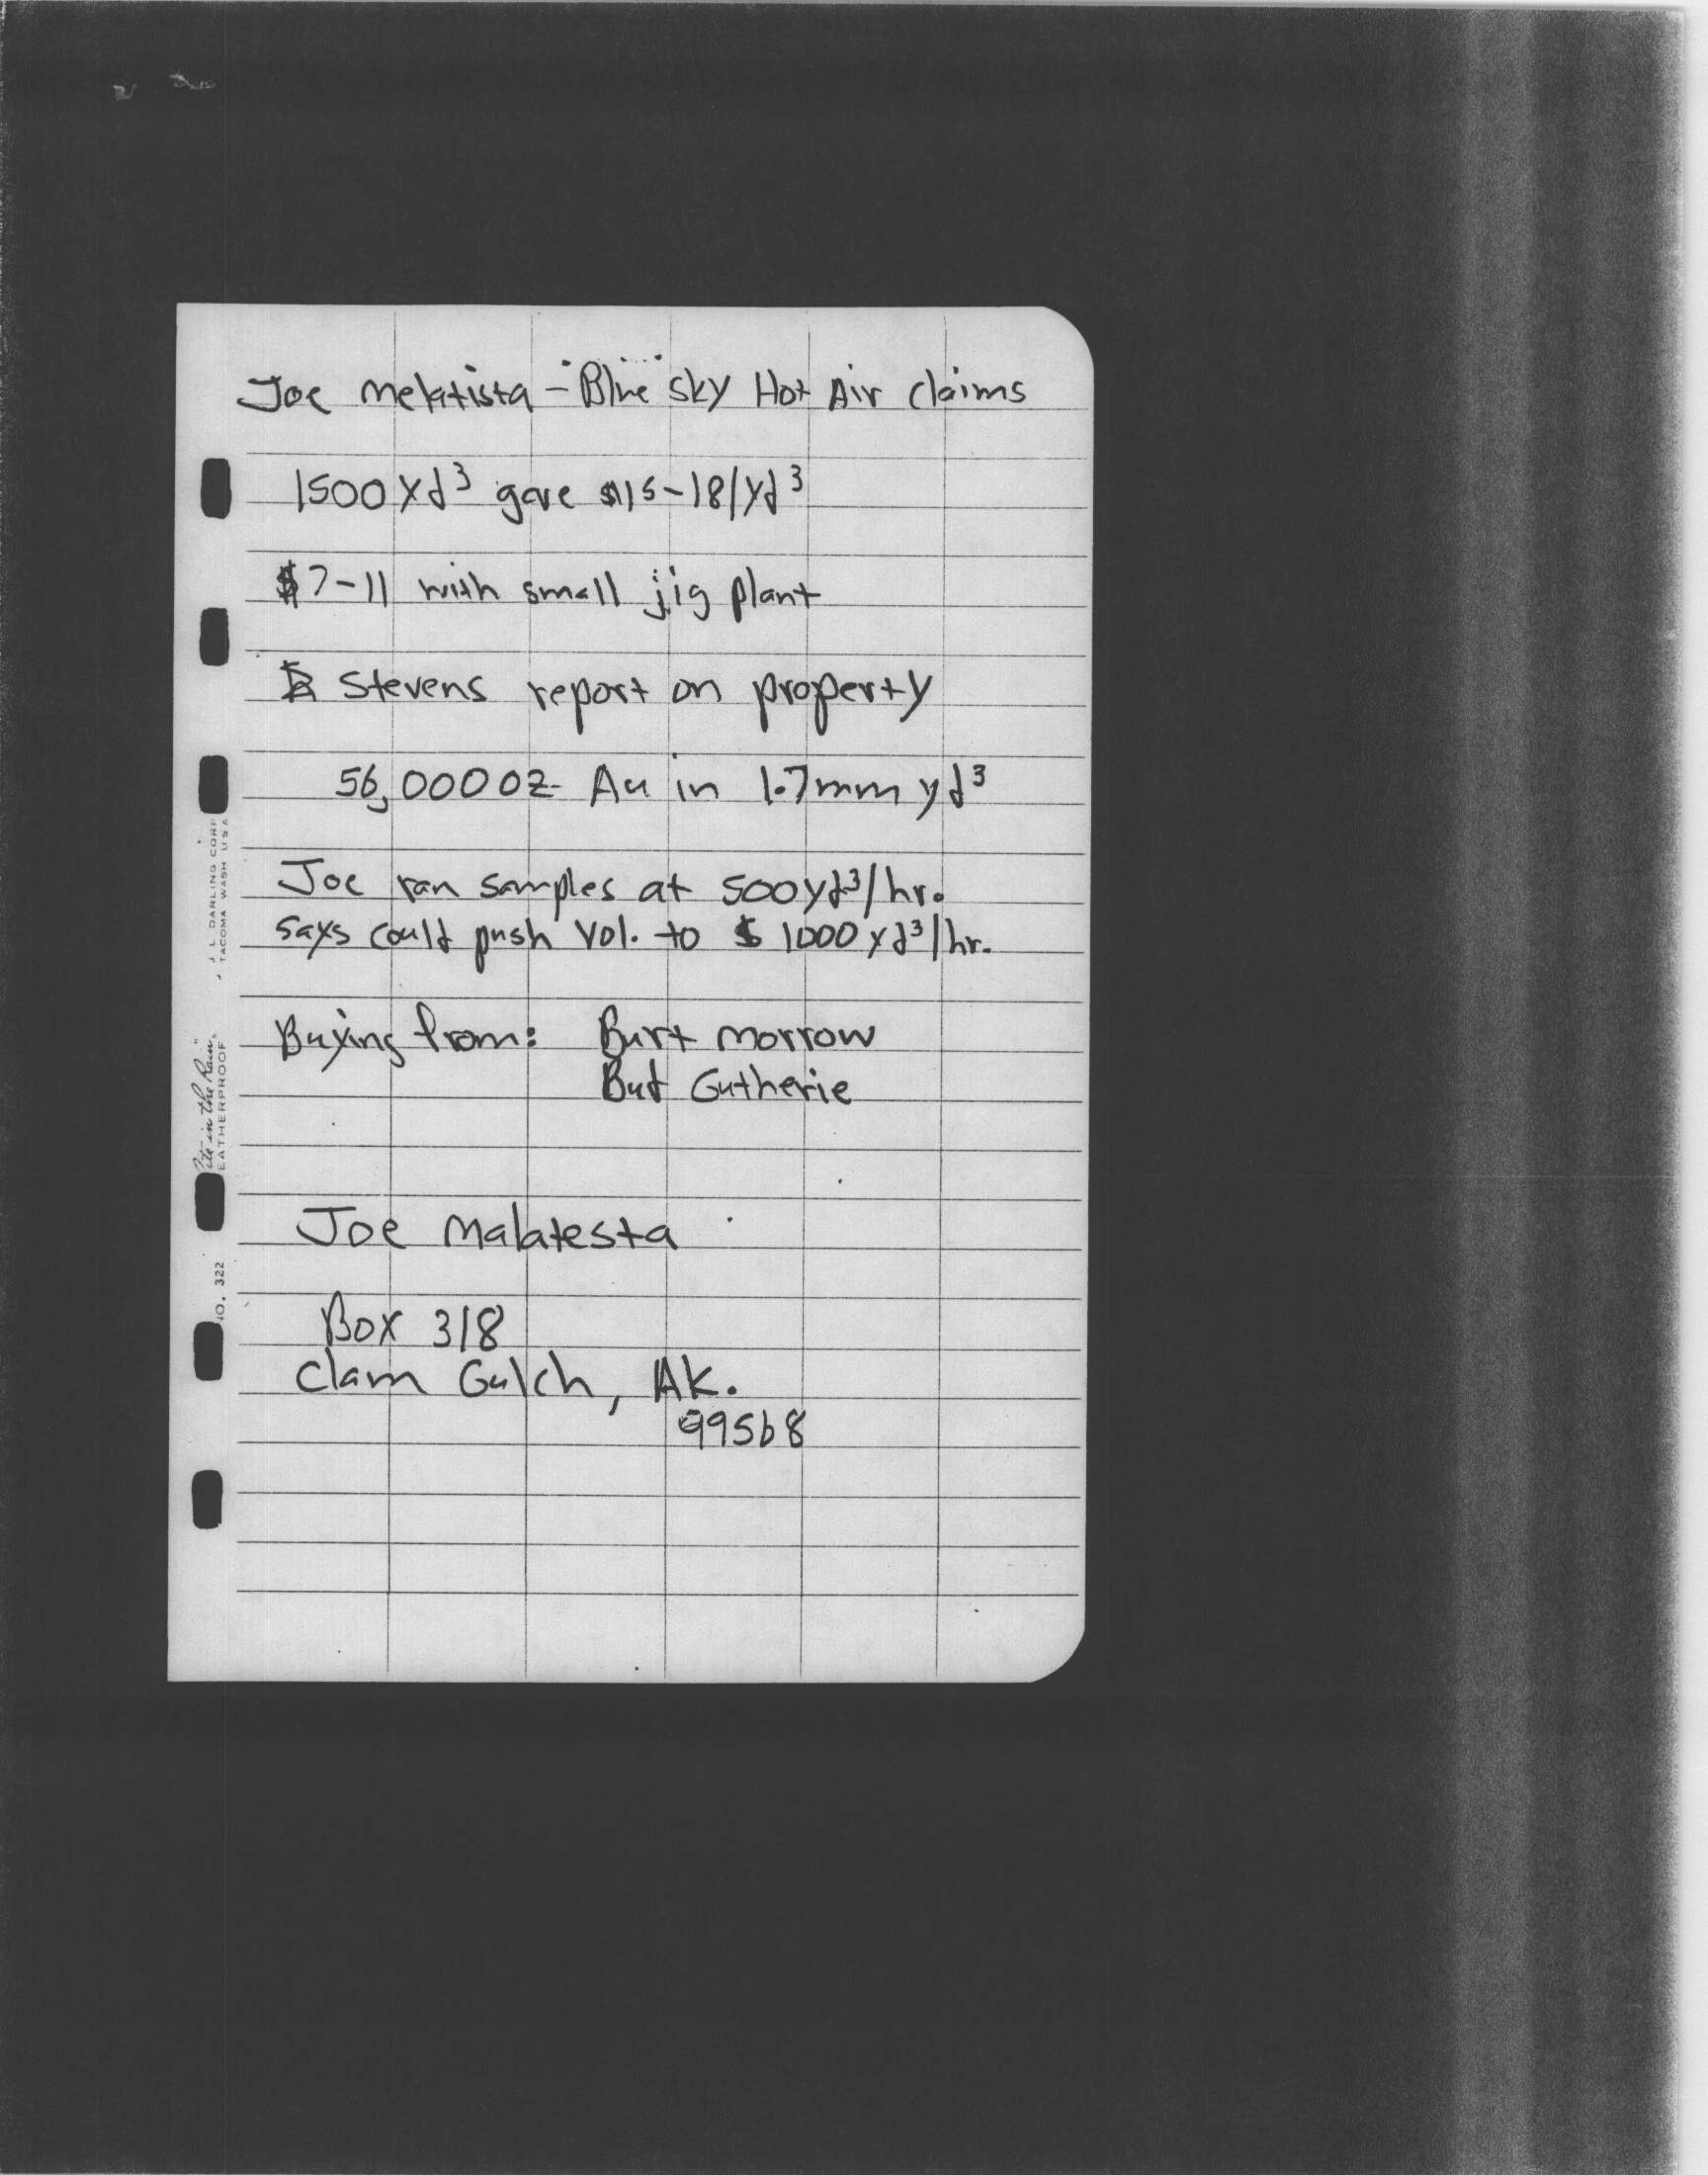 Joe Melatista - Blue Sky Hot Air Claims
1500 yd³ gave $15-18/yd³
$7-11 with small jig plant
Stevens report on property
56,000 oz Au in 1.7mm yd³
Joe ran samples at 500yd³/hr.
says could push vol. to $ 1000 yd³/hr.
Buying from: Burt Morrow
Bud Gutherie
Joe Malatesta
Box 318
Clam Gulch, Ak.
99568
J. L. DARLING CORP
TACOMA WASH USA
in the Rain"
EATHERPROOF
NO. 322